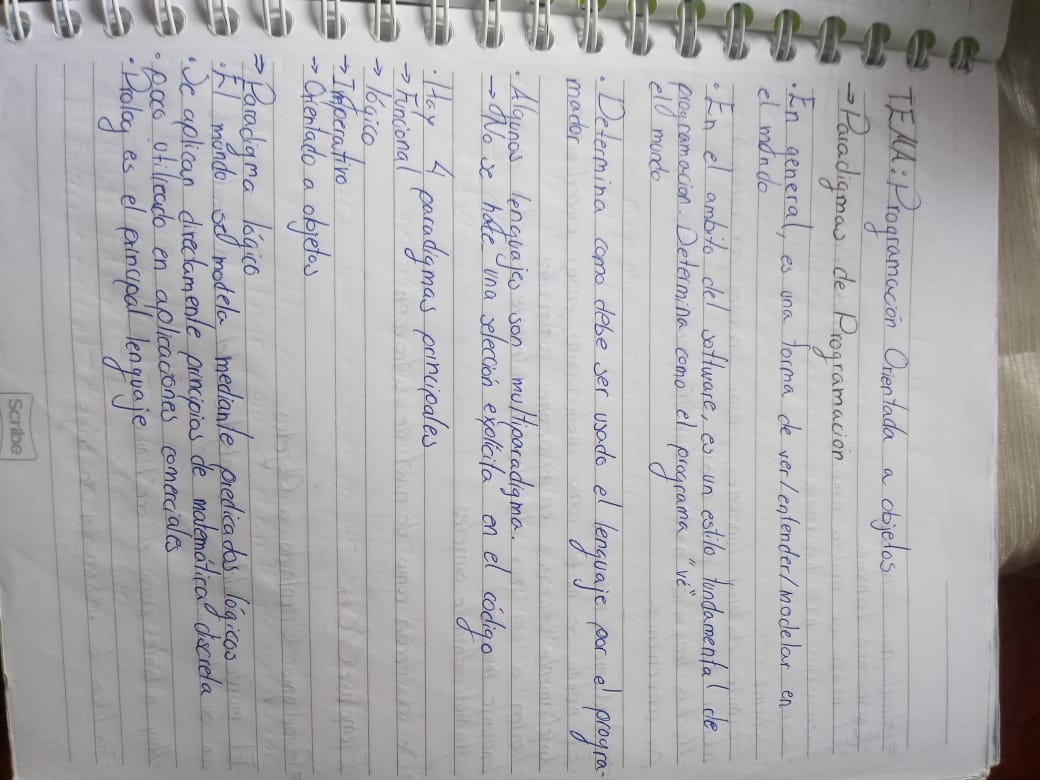 TEMA: Programación Orientada a objetos
→ Paradigmas de Programacion
• En general, es una forma de ver/entender/modelar en
el mundo
• En el ambito del software, es un estilo fundamental de
programacion. Determina como el programa "vé"
el mundo
• Determina como debe ser usado el lenguaje por el progra-
mador
• Algunos lenguajes son multiparadigma.
→ No se hace una selección explícita en el código
• Hay 4 paradigmas principales
→ Funcional
→ lógico
→ Imperativo
→ Orientado a objetos
⇒ Paradigma lógico
• El mundo se modela mediante predicados lógicos
• Se aplican directamente principios de matemática discreta
• Poco utilizado en aplicaciones comerciales
• Prolog es el principal lenguaje
Scribe